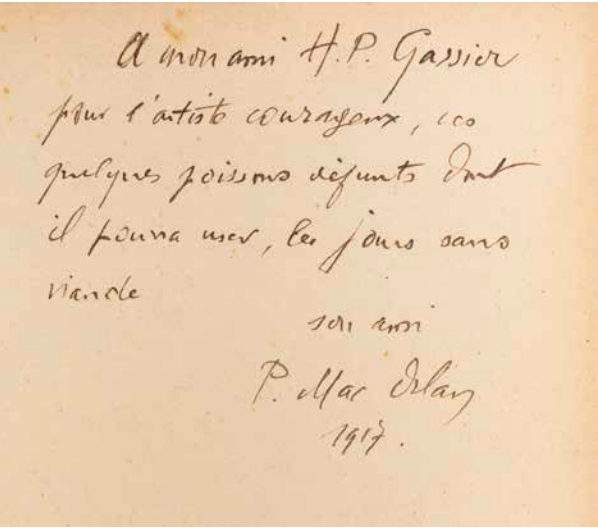 A mon ami H.P. Gassier
pour l'artiste courageux, ces
quelques poissons défunts dont
il pourra user, les jours sans
viande
son ami
P. Mac Orlan
1917.